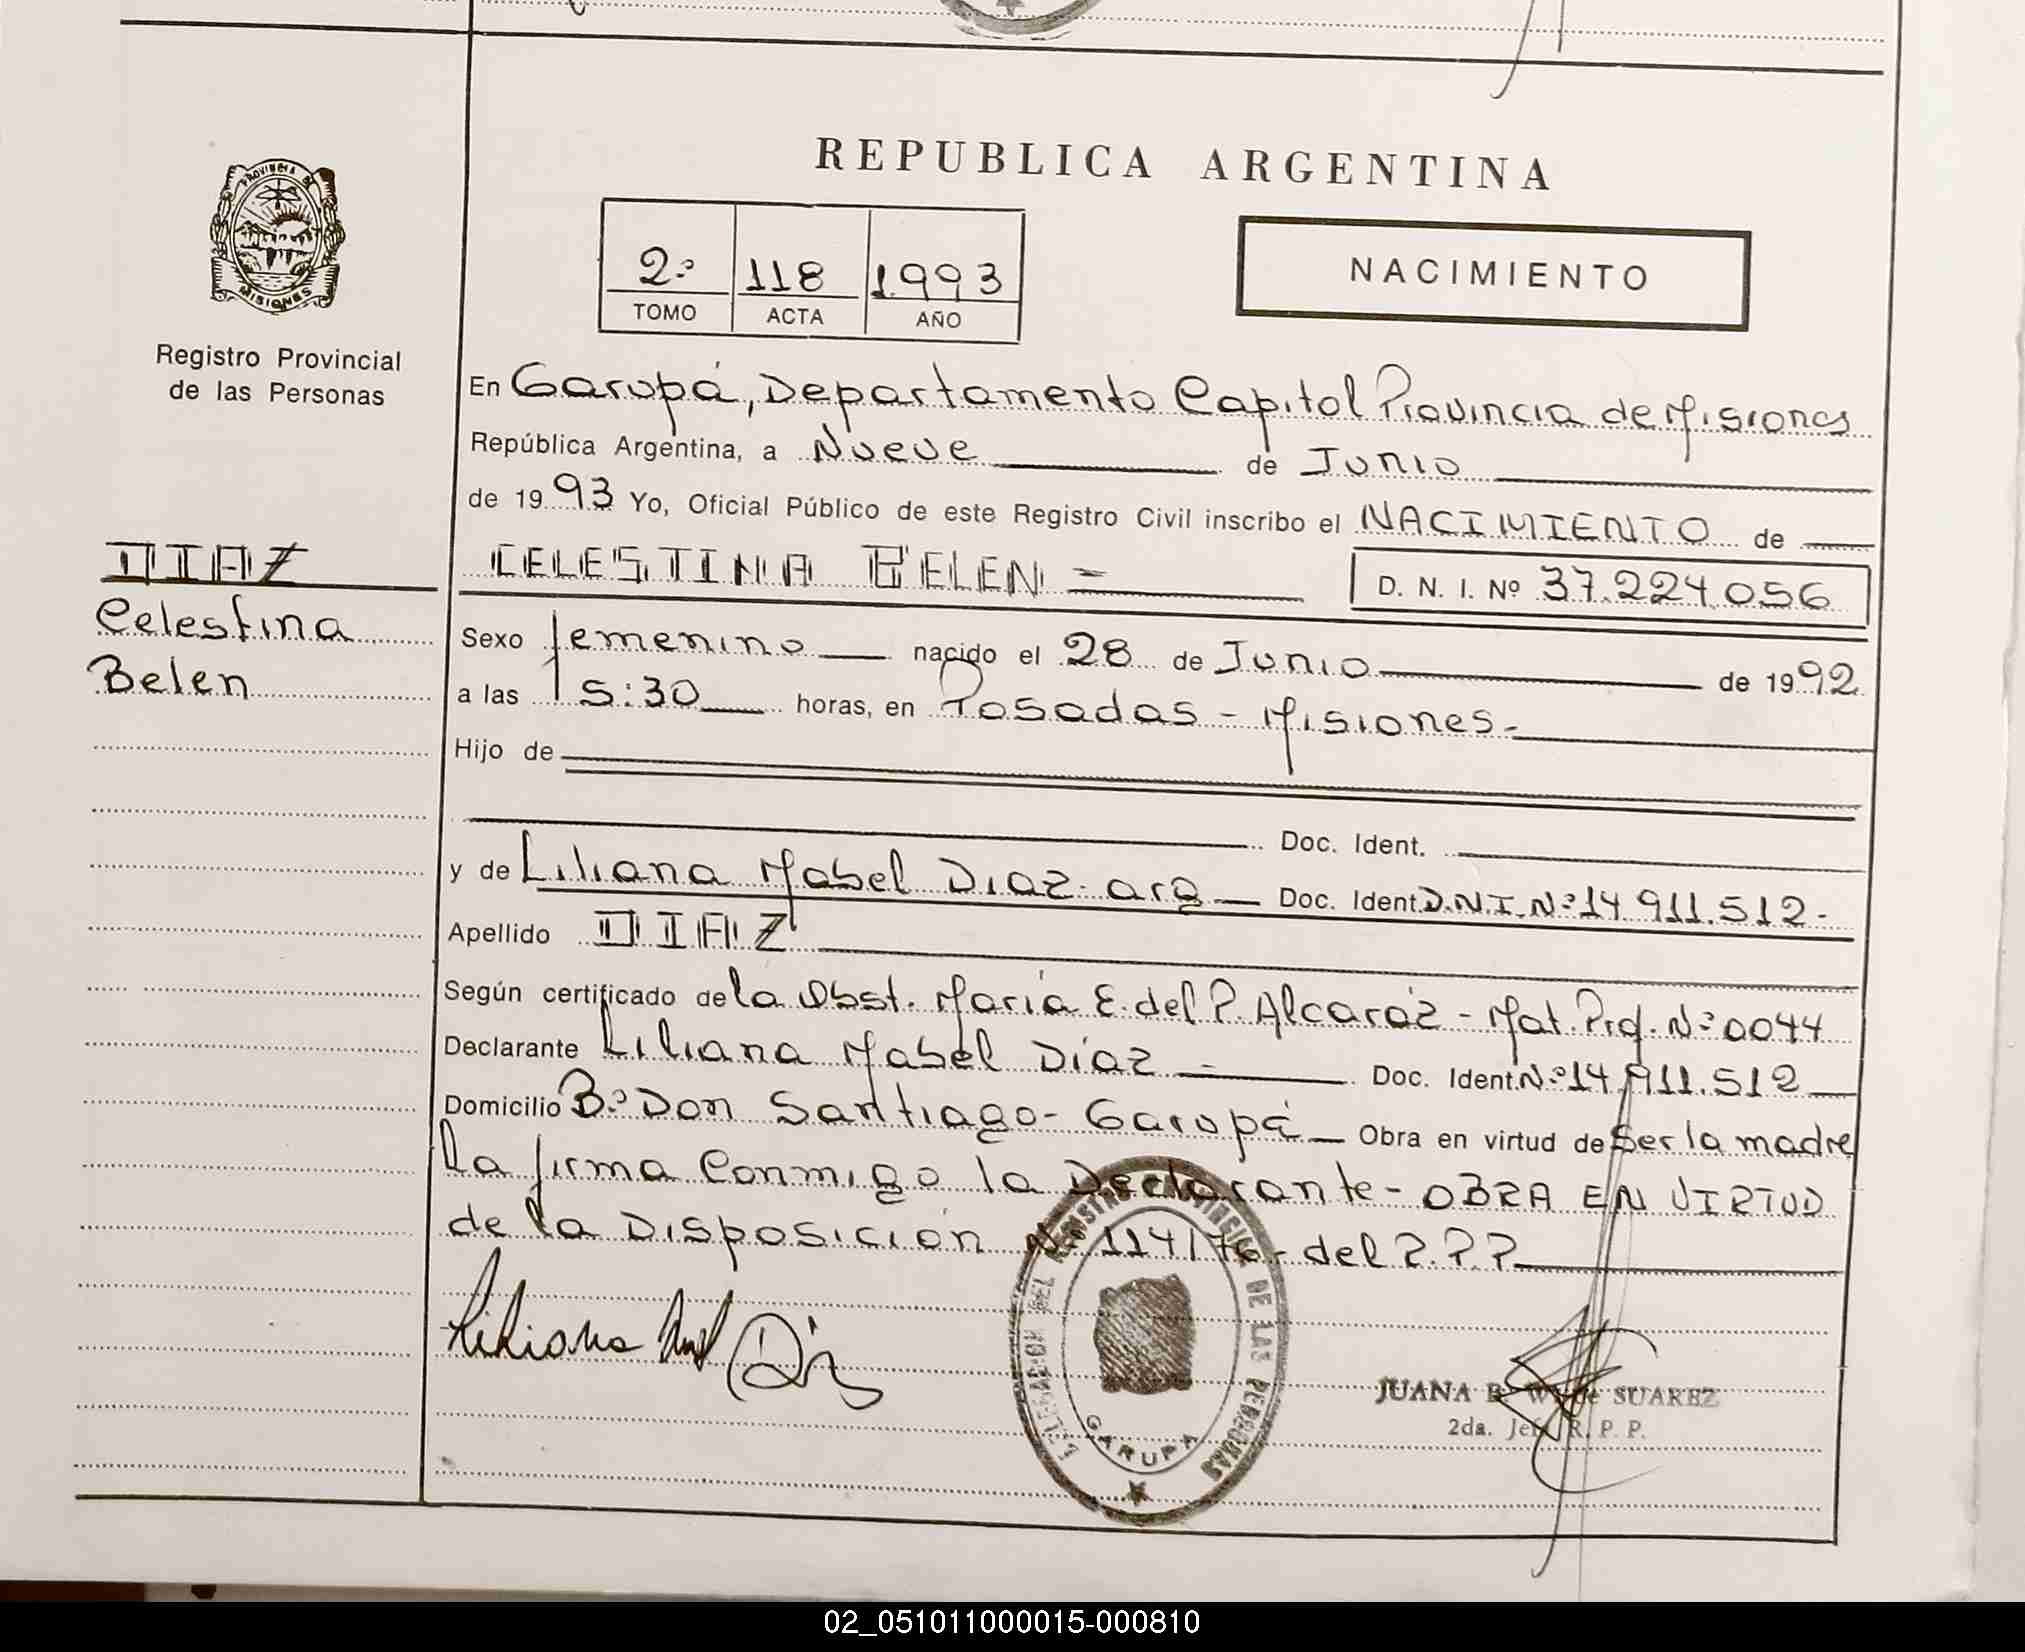 REPUBLICA ARGENTINA
PROVINCIA DE
MISIONES
Registro Provincial
de las Personas
2º 118 1.993
TOMO ACTA AÑO
NACIMIENTO
En Garupá, Departamento Capital Provincia de Misiones
República Argentina, a Nueve de Junio
de 1993 Yo, Oficial Público de este Registro Civil inscribo el NACIMIENTO de
DIAZ
Celestina
Belen
CELESTINA BELEN =
D. N. I. Nº 37.224.056
Sexo femenino nacido el 28 de Junio de 1992
a las 15:30 horas, en Posadas - Misiones.-
Hijo de
Doc. Ident.
y de Liliana Mabel Diaz- arg Doc. Ident. D.N.I. Nº 14.911.512.-
Apellido DIAZ
Según certificado de la Obst. María E. del P. Alcaráz - Mat. Prof. Nº 0044
Declarante Liliana Mabel Díaz - Doc. Ident. Nº 14.911.512
Domicilio Bº Don Santiago - Garupá Obra en virtud de Ser la madre
La firma Conmigo la Declarante - OBRA EN VIRTUD
de la Disposición Nº 114/76 - del R.P.P
Liliana Díaz
DELEGACION DEL REGISTRO PROVINCIAL DE LAS PERSONAS
GARUPA
JUANA B. de SUAREZ
2da. Jefe R. P. P.
02_051011000015-000810